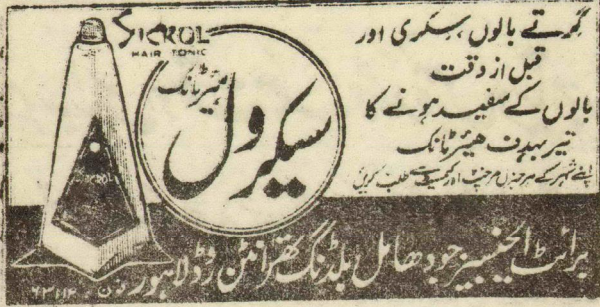 SICROL
HAIR TONIC
ہیئر ٹانک
سیکرول
گرتے بالوں، سکری اور
قبل از وقت
بالوں کے سفید ہونے کا
تیر بہدف ھیئر ٹانک
اپنے شہر کے ہر جنرل مرچنٹ اور کیمسٹ سے طلب کریں
برائٹ ایجنسیز جودھامل بلڈنگ تھارنٹن روڈ لاہور فون